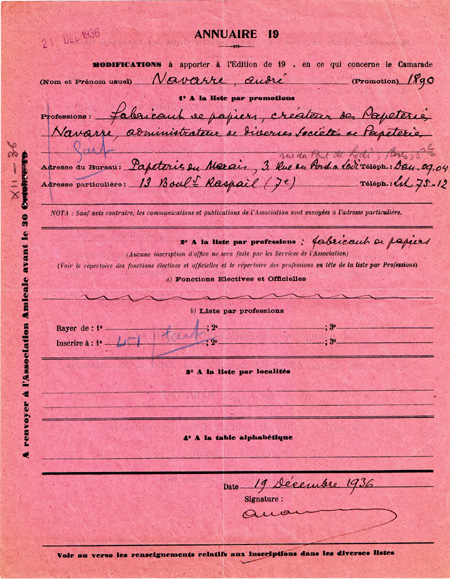 21 DEC 1936
ANNUAIRE 19
MODIFICATIONS à apporter à l'Edition de 19 , en ce qui concerne le Camarade
(Nom et Prénom usuel) Navarre, André (Promotion) 1890
1° A la liste par promotions
Professions : fabricant de papiers, créateur des Papeteries
Navarre, administrateur de diverses Sociétés de Papeterie
rue du Pont de Lodi, Paris, 6e
Adresse du Bureau : Papeteries du Marais, 3 Rue du Pont de Lodi Téléph.: Dan. 09.04
Adresse particulière : 13 Boult Raspail (7e) Téléph.: Lit. 75-12
NOTA : Sauf avis contraire, les communications et publications de l'Association sont envoyées à l'adresse particulière.
2° A la liste par professions : fabricant de papiers
(Aucune inscription d'office ne sera faite par les Services de l'Association)
(Voir le répertoire des fonctions électives et officielles et le répertoire des professions en tête de la liste par Professions)
a) Fonctions Electives et Officielles
b) Liste par professions
Rayer de : 1° ; 2° ; 3°
Inscrire à : 1° 451 ; 2° ; 3°
3° A la liste par localités
4° A la table alphabétique
Date 19 Décembre 1936
Signature :
Voir au verso les renseignements relatifs aux inscriptions dans les diverses listes
A renvoyer à l'Association Amicale avant le 30 Octobre 19
XII - 36